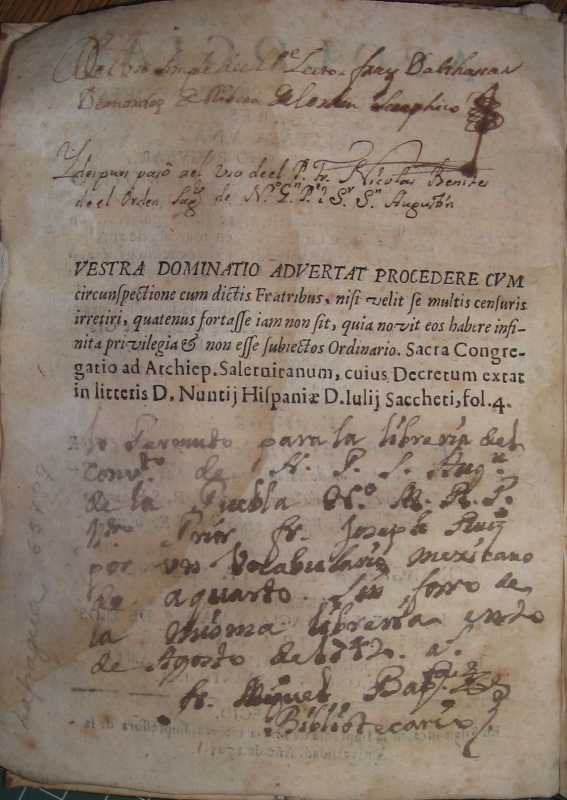 Del uso simple de el Pe. Letor fray Balthasar
Bernardez de Ribera Del orden Seraphico
Y despues pasó a el Uso de el P. Fr. Nicolas Benites
de el Orden de N. G. P. S. Sn. Augustin
VESTRA DOMINATIO ADVERTAT PROCEDERE CVM
circunspectione cum dictis Fratribus, nisi velit se multis censuris
irretiri, quatenus fortasse iam non sit, quia novit eos habere infi-
nita privilegia & non esse subiectos Ordinario. Sacra Congre-
gatio ad Archiep. Salernitanum, cuius Decretum extat
in litteris D. Nuntij Hispaniæ D. Iulij Saccheti, fol. 4.
Permuto para la libreria del
Convto. de N. P. S. Augn.
de la Puebla N. M. R. P.
Prior fr. Joseph Ruiz
por un Vocabulario mexicano
de aquarto sin forro de
la misma libreria
de Agosto de 1742. a.
fr. Miguel Bapta.
Bibliotecario